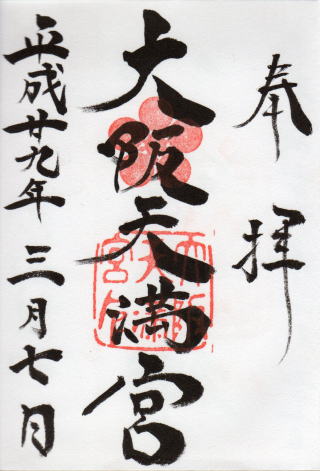 奉拝
大阪天満宮
平成廿九年三月七日